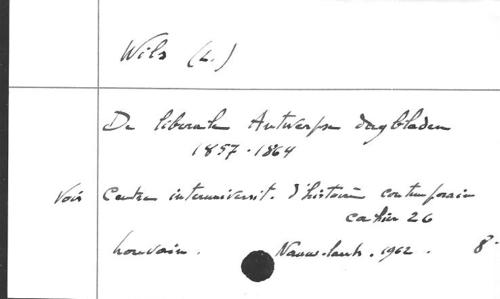 Wils (L.)
De liberale Antwerpse dagbladen
1857-1864
Voir Centre interuniversit. d'histoire contemporaine
cahier 26
Louvain. Nauwelaerts. 1962. 8°